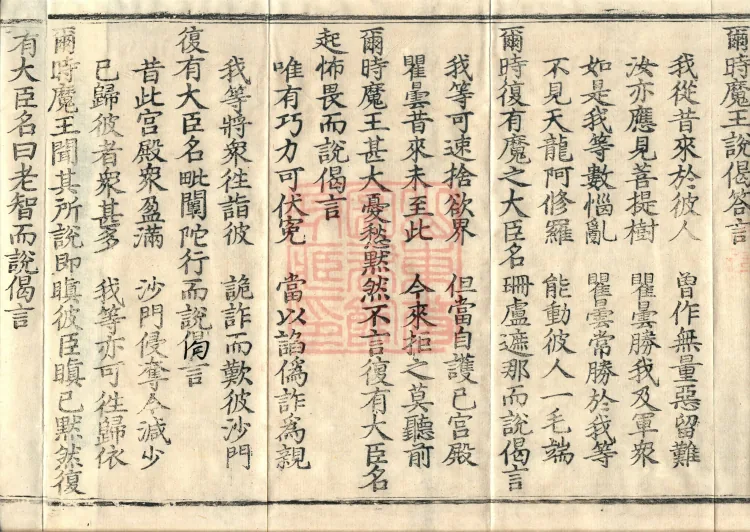 爾時魔王說偈答言
我從昔來於彼人　曾作無量惡留難
汝亦應見菩提樹　瞿曇勝我及軍衆
如是我等數惱亂　瞿曇常勝於我等
不見天龍阿修羅　能動彼人一毛端
爾時復有魔之大臣名珊盧遮那而說偈言
我等可速捨欲界　但當自護已宮殿
瞿曇昔來未至此　今來拒之莫聽前
爾時魔王甚大憂愁黙然不言復有大臣名
起怖畏而說偈言
唯有巧力可伏寃　當以諂僞詐為親
我等將衆往詣彼　詭詐而歎彼沙門
復有大臣名毗闌陀行而說偈言
昔此宮殿衆盈滿　沙門侵奪令減少
已歸彼者衆甚多　我等亦可往歸依
爾時魔王聞其所說即瞋彼臣瞋已黙然復
有大臣名曰老智而說偈言